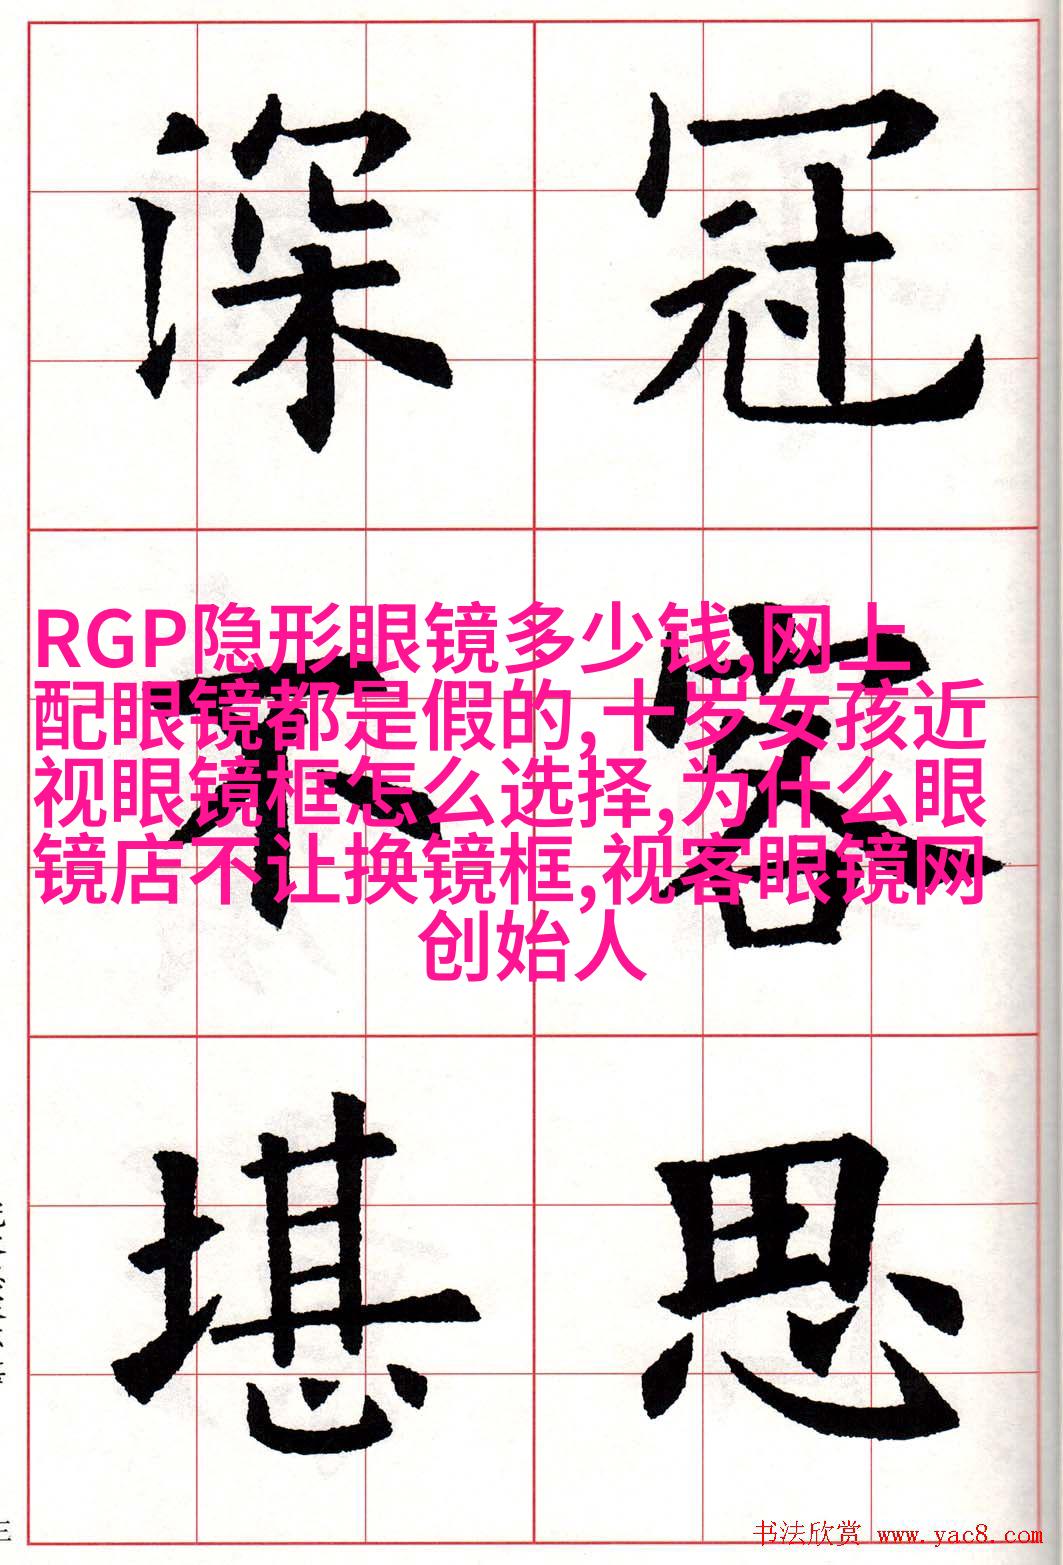 深冠
不容
堪思
RGP隐形眼镜多少钱,网上
配眼镜都是假的,十岁女孩近
视眼镜框怎么选择,为什么眼
镜店不让换镜框,视客眼镜网
创始人
书法欣赏 www.yac8.com